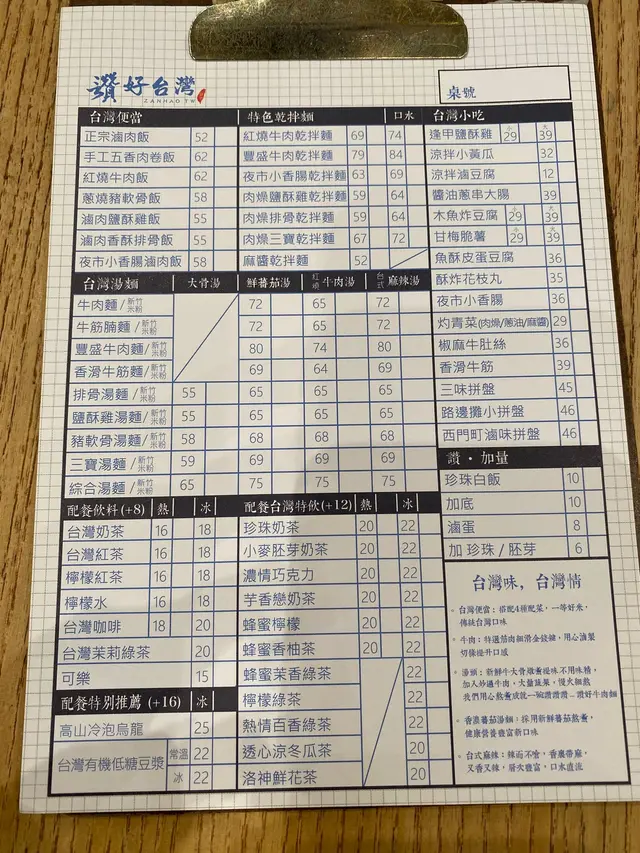 讚好台灣
ZANHAO.TW
桌號
台灣便當
正宗滷肉飯 52
手工五香肉卷飯 62
紅燒牛肉飯 62
蔥燒豬軟骨飯 58
滷肉鹽酥雞飯 55
滷肉香酥排骨飯 55
夜市小香腸滷肉飯 58
特色乾拌麵 口水
紅燒牛肉乾拌麵 69 74
豐盛牛肉乾拌麵 79 84
夜市小香腸乾拌麵 63 69
肉燥鹽酥雞乾拌麵 59 64
肉燥排骨乾拌麵 59 64
肉燥三寶乾拌麵 67 72
麻醬乾拌麵 52
台灣湯麵 大骨湯 鮮蕃茄湯 紅燒牛肉湯 台式麻辣湯
牛肉麵/新竹米粉 72 65 72
牛筋腩麵/新竹米粉 72 65 72
豐盛牛肉麵/新竹米粉 80 74 80
香滑牛筋麵/新竹米粉 69 64 69
排骨湯麵/新竹米粉 55 65 65 65
鹽酥雞湯麵/新竹米粉 55 65 65 65
豬軟骨湯麵/新竹米粉 58 68 68 68
三寶湯麵/新竹米粉 59 69 69 69
綜合湯麵/新竹米粉 65 75 75 75
配餐飲料(+8) 熱 冰
台灣奶茶 16 18
台灣紅茶 16 18
檸檬紅茶 16 18
檸檬水 16 18
台灣咖啡 18 20
台灣茉莉綠茶 20
可樂 15
配餐特別推薦 (+16) 冰
高山冷泡烏龍 25
台灣有機低糖豆漿 常溫 22
冰 22
配餐台灣特飲(+12) 熱 冰
珍珠奶茶 20 22
小麥胚芽奶茶 20 22
濃情巧克力 20 22
芋香戀奶茶 20 22
蜂蜜檸檬 20 22
蜂蜜香柚茶 20 22
蜂蜜茉香綠茶 22
檸檬綠茶 22
熱情百香綠茶 22
透心涼冬瓜茶 20
洛神鮮花茶 20
台灣小吃
逢甲鹽酥雞 小29 大39
涼拌小黃瓜 32
涼拌滷豆腐 12
醬油蔥串大腸 39
木魚炸豆腐 小29 大39
甘梅脆薯 小29 大39
魚酥皮蛋豆腐 36
酥炸花枝丸 35
夜市小香腸 36
灼青菜(肉燥/蔥油/麻醬) 29
椒麻牛肚絲 36
香滑牛筋 39
三味拼盤 45
路邊攤小拼盤 46
西門町滷味拼盤 46
讚・加量
珍珠白飯 10
加底 10
滷蛋 8
加 珍珠/胚芽 6
台灣味，台灣情
台灣便當：搭配4種配菜，一等好米，
傳統台灣口味
牛肉：特選筋肉細滑金錢腱，用心滷製
切條提升口感
湯頭：新鮮牛大骨燉煮提味不用味精，
加入炒過牛肉，大量蔬果，慢火細熬
我們用心熬煮成就一碗讚讚讚～讚好牛肉麵
香濃蕃茄湯麵：採用新鮮蕃茄熬煮，
健康營養豐富新口味
台式麻辣：辣而不嗆，香裏帶麻，
又香又辣，層次豐富，口水直流